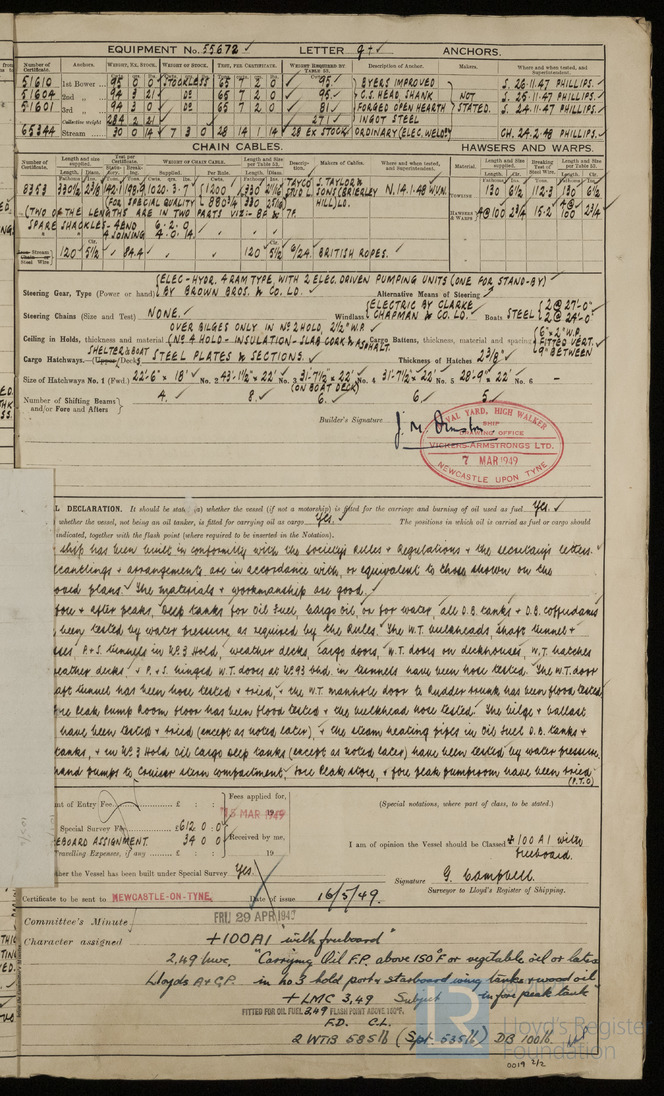 EQUIPMENT No. 55672 LETTER g† ANCHORS.
Number of Certificate. Anchors. WEIGHT, EX. STOCK. WEIGHT OF STOCK. TEST, PER CERTIFICATE. WEIGHT REQUIRED BY TABLE 53. Description of Anchor. Makers. Where and when tested, and Superintendent.
51610 1st Bower 95 0 0 STOCKLESS 65 7 2 0 95 BYERS IMPROVED S. 26.11.47 PHILLIPS.
51604 2nd 94 3 21 Do 65 7 2 0 95 C.S. HEAD, SHANK NOT S. 25.11.47 PHILLIPS.
51601 3rd 94 3 0 Do 65 7 2 0 81 FORGED OPEN HEARTH STATED. S. 24.11.47 PHILLIPS.
Collective weight 284 2 21 271 INGOT STEEL
65344 Stream 30 0 14 7 3 0 28 14 1 14 28 EX STOCK ORDINARY (ELEC. WELD) CH. 24.2.48 PHILLIPS.
CHAIN CABLES. HAWSERS AND WARPS.
Number of Certificate. Length and size supplied. Test per Certificate. WEIGHT OF CHAIN CABLE. Length and size per Table 53. Description. Makers of Cables. Where and when tested, and Superintendent. Material Length and size supplied. Breaking Test of Steel Wire. Length and size per Table 53.
8353 330 1/2 2 3/8 142.1 198.9 1020.3.7 1200 330 2 11/16 TAYCO STUD L. S. TAYLOR & SONS (BRIERLEY HILL) LD. N. 14.1.48 WVN. TOWLINE 130 6 1/2 112.3 130 6 1/2
(FOR SPECIAL QUALITY 880 3/4 330 2 5/16) HAWSERS & WARPS 4@100 2 3/4 15.2 4@100 2 3/4
(TWO OF THE LENGTHS ARE IN TWO PARTS VIZ:- 8F & 7F.
SPARE SHACKLES - 4 END 6.2.0
4 JOINING 4.0.14
Steel Wire 120 5 1/2 84.4 120 5 1/2 6/24 BRITISH ROPES.
Steering Gear, Type (Power or hand) ELEC-HYDR. 4 RAM TYPE, WITH 2 ELEC. DRIVEN PUMPING UNITS (ONE FOR STAND-BY)
BY BROWN BROS. & CO. LD. Alternative Means of Steering
Steering Chains (Size and Test) NONE. Windlass ELECTRIC BY CLARKE CHAPMAN & CO. LD. Boats STEEL 2 @ 27'-0" 2 @ 24'-0"
OVER BILGES ONLY IN No 2 HOLD, 2 1/2" W.P.
Ceiling in Holds, thickness and material (No. 4 HOLD - INSULATION - SLAB CORK & ASPHALT. Cargo Battens, thickness, material and spacing 6"x2" W.P. FITTED VERT. 9" BETWEEN
Cargo Hatchways.
SHELTER & BOAT (Upper Deck) STEEL PLATES & SECTIONS. Thickness of Hatches 2 3/8"
Size of Hatchways No. 1 (Fwd.) 22'-6" × 18' No. 2 43'-1 1/2" × 22' No. 3 31'-7 1/2" × 22' No. 4 31'-7 1/2" × 22' No. 5 28'-9" × 22' No. 6 -
(ON BOAT DECK)
Number of Shifting Beams and/or Fore and Afters 4. 8. 6. 6. 5.
Builder's Signature J. M. Ormston
NAVAL YARD, HIGH WALKER
SHIP
DRAWING OFFICE
VICKERS-ARMSTRONGS LTD.
7 MAR 1949
NEWCASTLE UPON TYNE
L DECLARATION. It should be stated (a) whether the vessel (if not a motorship) is fitted for the carriage and burning of oil used as fuel Yes.
whether the vessel, not being an oil tanker, is fitted for carrying oil as cargo Yes. The positions in which oil is carried as fuel or cargo should
indicated, together with the flash point (where required to be inserted in the Notation).
ship has been built in conformity with the Society's Rules & Regulations & the Secretary's letters.
scantlings & arrangements are in accordance with, or equivalent to those shown on the
oved plans. The materials & workmanship are good.
fore & after peaks, Deep tanks for Oil Fuel, Cargo Oil, or for water, all D.B. tanks & D.B. cofferdams
been tested by water pressure, as required by the Rules. The W.T. bulkheads, shaft tunnel &
P. & S. tunnels in No. 3 Hold, weather decks, cargo doors, W.T. doors on deckhouses, W.T. hatches
weather decks & P. & S. hinged W.T. doors at No. 93 bhd. in tunnels have been hose tested. The W.T. door
aft tunnel has been hose tested & tried, & the W.T. manhole door to Rudder trunk has been flood tested
fore Peak Pump Room floor has been flood tested & the bulkhead hose tested. The bilge & ballast
have been tested & tried (except as noted later), & the steam heating pipes in Oil Fuel D.B. tanks &
tanks, & in No. 3 Hold Oil Cargo Deep tanks (except as noted later) have been tested by water pressure.
hand pumps to Cruiser stern compartment, Fore Peak store, & fore peak pumproom have been tried.
(P.T.O)
nt of Entry Fee £ : : Fees applied for, (Special notations, where part of class, to be stated.)
15 MAR 1949
Special Survey Fee £612 0 0
EBOARD ASSIGNMENT 34 0 0 Received by me, I am of opinion the Vessel should be Classed +100A1 with freeboard.
Travelling Expenses, if any £ : : 19
ther the Vessel has been built under Special Survey Yes. Signature G. Campbell.
Surveyor to Lloyd's Register of Shipping.
Certificate to be sent to NEWCASTLE-ON-TYNE. Date of issue 16/5/49.
Committee's Minute FRI 29 APR 1949
Character assigned +100A1 "with freeboard"
2,49 "Carrying Oil F.P. above 150°F or vegetable oil or latex
Lloyds A & C.P. in no 3 hold port & starboard wing tanks & wood oil
+ LMC 3,49 Subject in fore peak tank"
FITTED FOR OIL FUEL 3,49 FLASH POINT ABOVE 150°F.
F.D. C.L.
2 WTB 585 lb (Spt. 535 lb) DB 100 lb.
Lloyd's Register
Foundation
0019 2/2